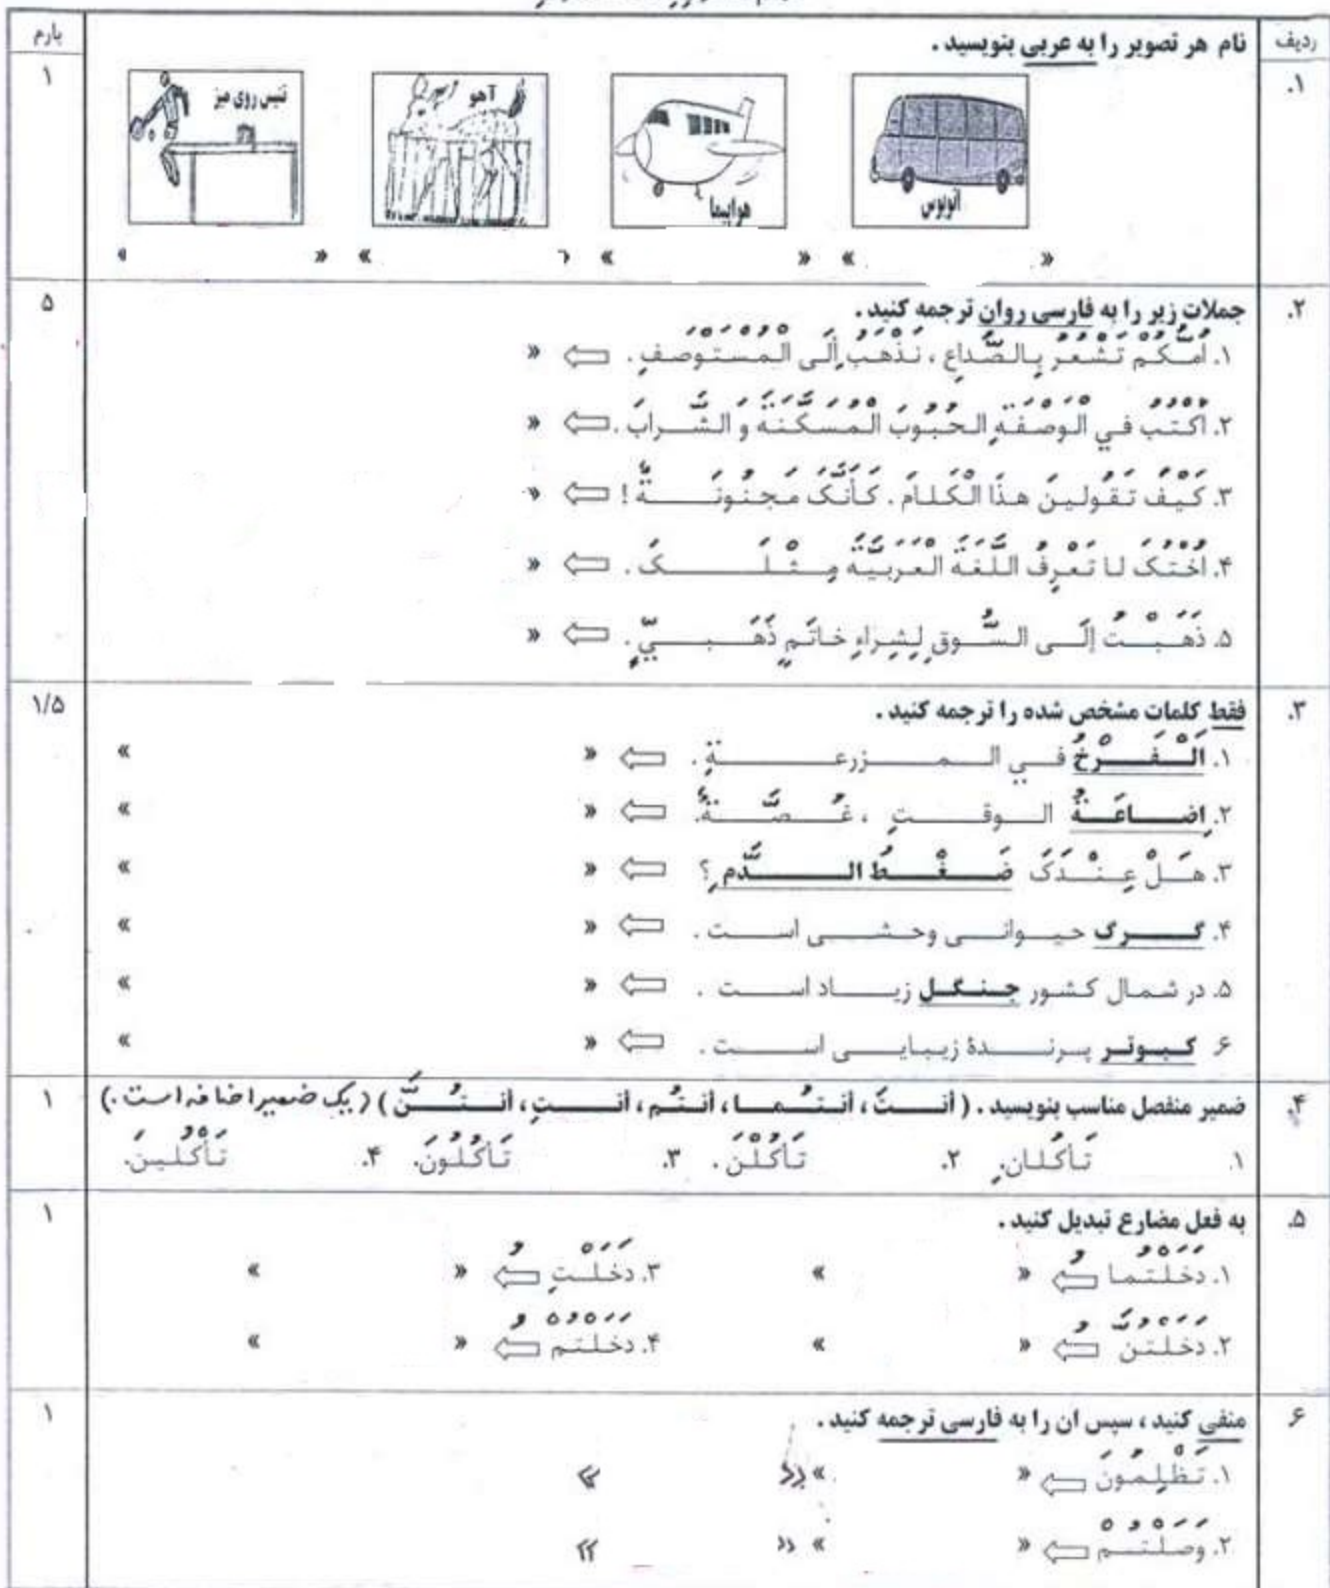 ردیف
نام هر تصویر را به عربی بنویسید.
بارم
۱.
۱
اتوبوس
هواپیما
آهو
تنیس روی میز
« » « » « » « »
۲. جملات زیر را به فارسی روان ترجمه کنید. ۵
۱. أُمُّکُمْ تَشْعُرُ بِالصُّداعِ، نَذْهَبُ إلَی الْمُسْتَوْصَفِ. ⇦ «
۲. أَکْتُبُ في الْوَصْفَةِ الحُبُوبَ الْمُسَکِّنَةَ وَ الشَّرابَ. ⇦ «
۳. کَیْفَ تَقُولینَ هذَا الْکَلامَ. کَأَنَّکَ مَجنُونَةٌ! ⇦ «
۴. اُخْتُکَ لا تَعْرِفُ اللُّغَةَ الْعَرَبیَّةَ مِثْلَکَ. ⇦ «
۵. ذَهَبْتُ إلَی السُّوقِ لِشِراءِ خاتَمٍ ذَهَبيٍّ. ⇦ «
۳. فقط کلمات مشخص شده را ترجمه کنید. ۱/۵
۱. اَلْفَرْخُ في المزرعةِ. ⇦ « »
۲. اِضاعَةُ الوقتِ، غُصَّةٌ. ⇦ « »
۳. هَلْ عِنْدَکَ ضَغْطُ الدَّمِ؟ ⇦ « »
۴. گرگ حیوانی وحشی است. ⇦ « »
۵. در شمال کشور جنگل زیاد است. ⇦ « »
۶. کبوتر پرندهٔ زیبایی است. ⇦ « »
۴. ضمیر منفصل مناسب بنویسید. (أنتَ، أنتُما، أنتُم، أنتِ، أنتُنَّ) (یک ضمیر اضافه است.) ۱
۱. تَأکُلانِ. ۲. تَأکُلْنَ. ۳. تَأکُلُونَ. ۴. تَأْکُلینَ.
۵. به فعل مضارع تبدیل کنید. ۱
۱. دَخَلْتُما ⇦ « » ۳. دَخَلْتِ ⇦ « »
۲. دَخَلْتُنَّ ⇦ « » ۴. دَخَلْتُمْ ⇦ « »
۶ منفی کنید، سپس ان را به فارسی ترجمه کنید. ۱
۱. تَظْلِمُونَ ⇦ « » « »
۲. وَصَلْتُمْ ⇦ « » « »